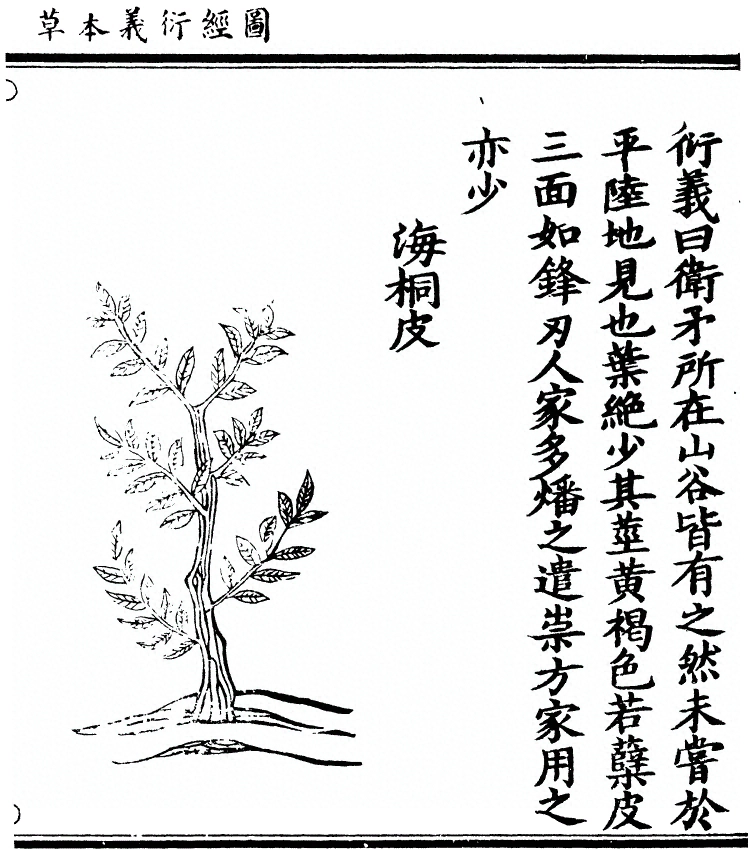 圖經衍義本草
衍義曰衛矛所在山谷皆有之然未嘗於
平陸地見也葉絶少其莖黄褐色若蘖皮
三面如鋒刃人家多燔之遣祟方家用之
亦少
海桐皮